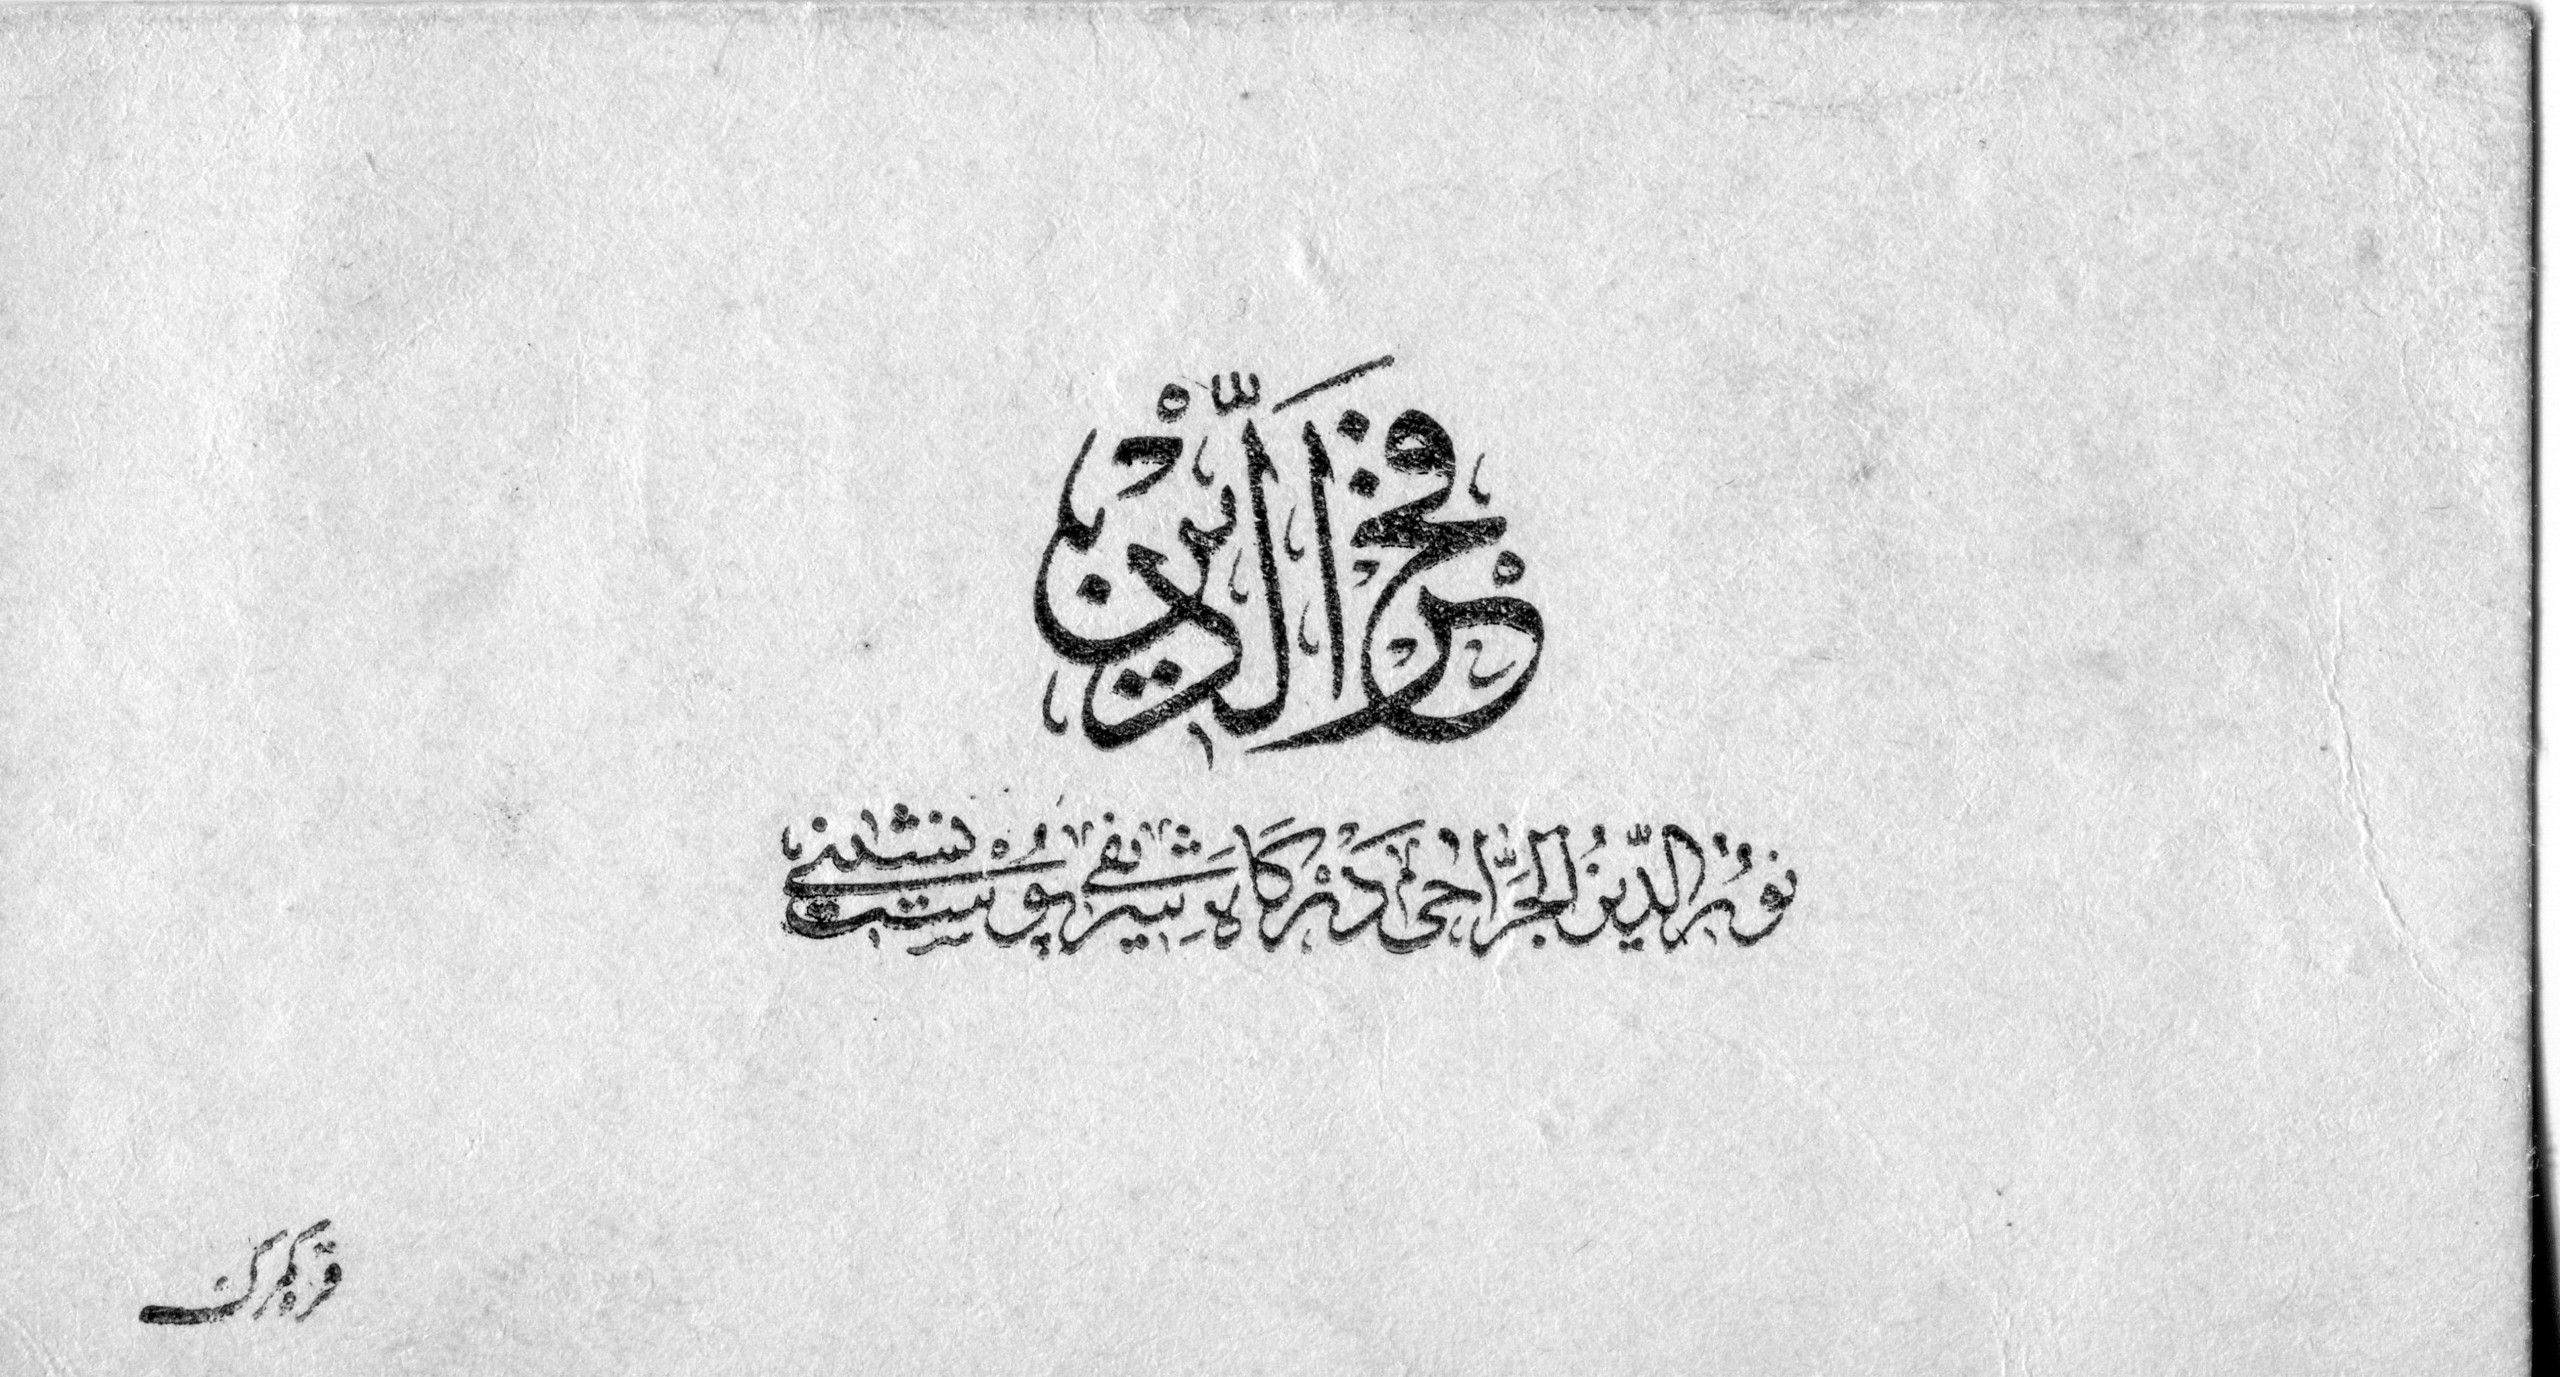 فخر الدين
نور الدين الجراحى درگاه شريفى پوست نشينى
قره گمرك